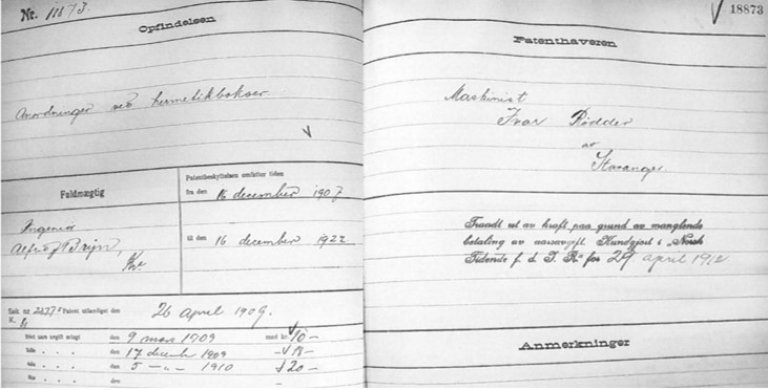 Nr. 18873.
Opfindelsen
Anordninger ved hermetikbokser.
Fuldmægtig
Patentbeskyttelsen omfatter tiden
fra den 16 december 1907
til den 16 december 1922
Ingeniør
Alfred J Bryn,
Kra
Patent utfærdiget den 26 april 1909.
den 9 mars 1909 med kr. 10 –
3die den 17 decemb 1909 - 15 -
den 5 – „ – 1910 20 –
den –
18873
Patenthaveren
Maskinist
Ivar Rødder
av
Stavanger.
Traadt ut av kraft paa grund av manglende
betaling av aarsavgift. Kundgjort i „Norsk
Tidende f. d. I. R." for 29 april 1912
Anmerkninger